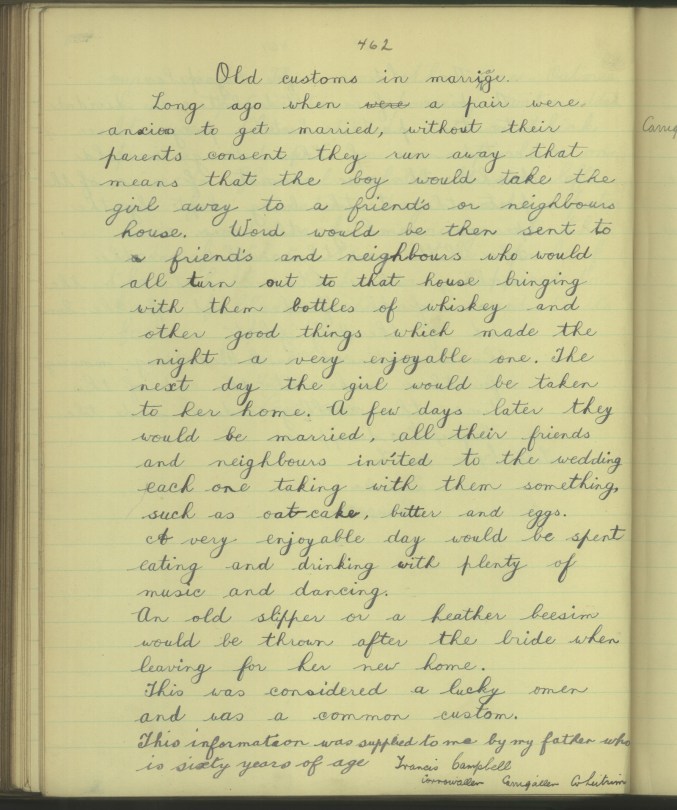 462
Old customs in marrige.
Long ago when were a pair were
anxios to get married, without their
parents consent they run away that
means that the boy would take the
girl away to a friend's or neighbours
house. Word would be then sent to
a friend's and neighbours who would
all turn out to that house bringing
with them bottles of whiskey and
other good things which made the
night a very enjoyable one. The
next day the girl would be taken
to her home. A few days later they
would be married, all their friends
and neighbours invited to the wedding
each one taking with them something,
such as oat-cake, butter and eggs.
A very enjoyable day would be spent
eating and drinking with plenty of
music and dancing.
An old slipper or a heather beesim
would be thrown after the bride when
leaving for her new home.
This was considered a lucky omen
and was a common custom.
This information was supplied to me by my father who
is sixty years of age Francis Campbell
Cornowaller Carrigallen Co Leitrim